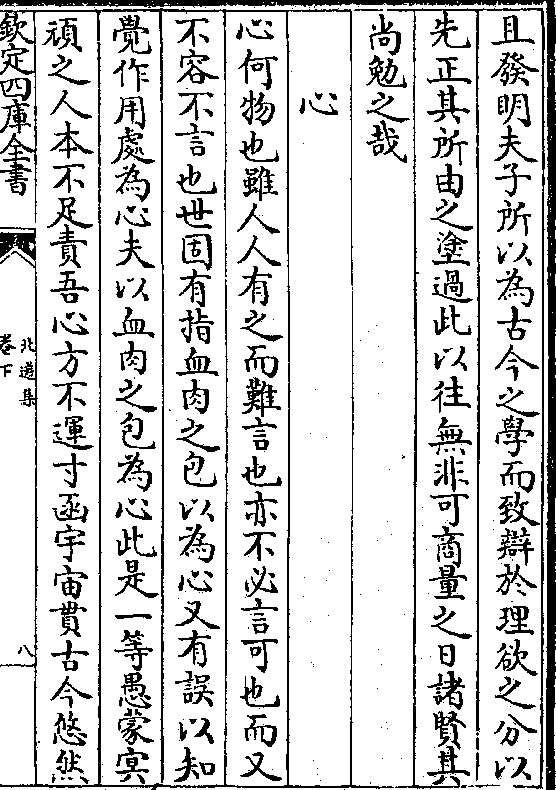 且發明夫子所以為古今之學而致辯於理欲之分以
先正其所由之塗過此以往無非可商量之日諸賢其
尚勉之哉
心
心何物也雖人人有之而難言也亦不必言可也而又
不容不言也世固有指血肉之包以為心又有誤以知
覺作用處為心夫以血肉之包為心此是一等愚蒙冥
頑之人本不足責吾心方不運寸函宇宙貫古今悠然
欽定四庫全書
北遊集
卷下
八